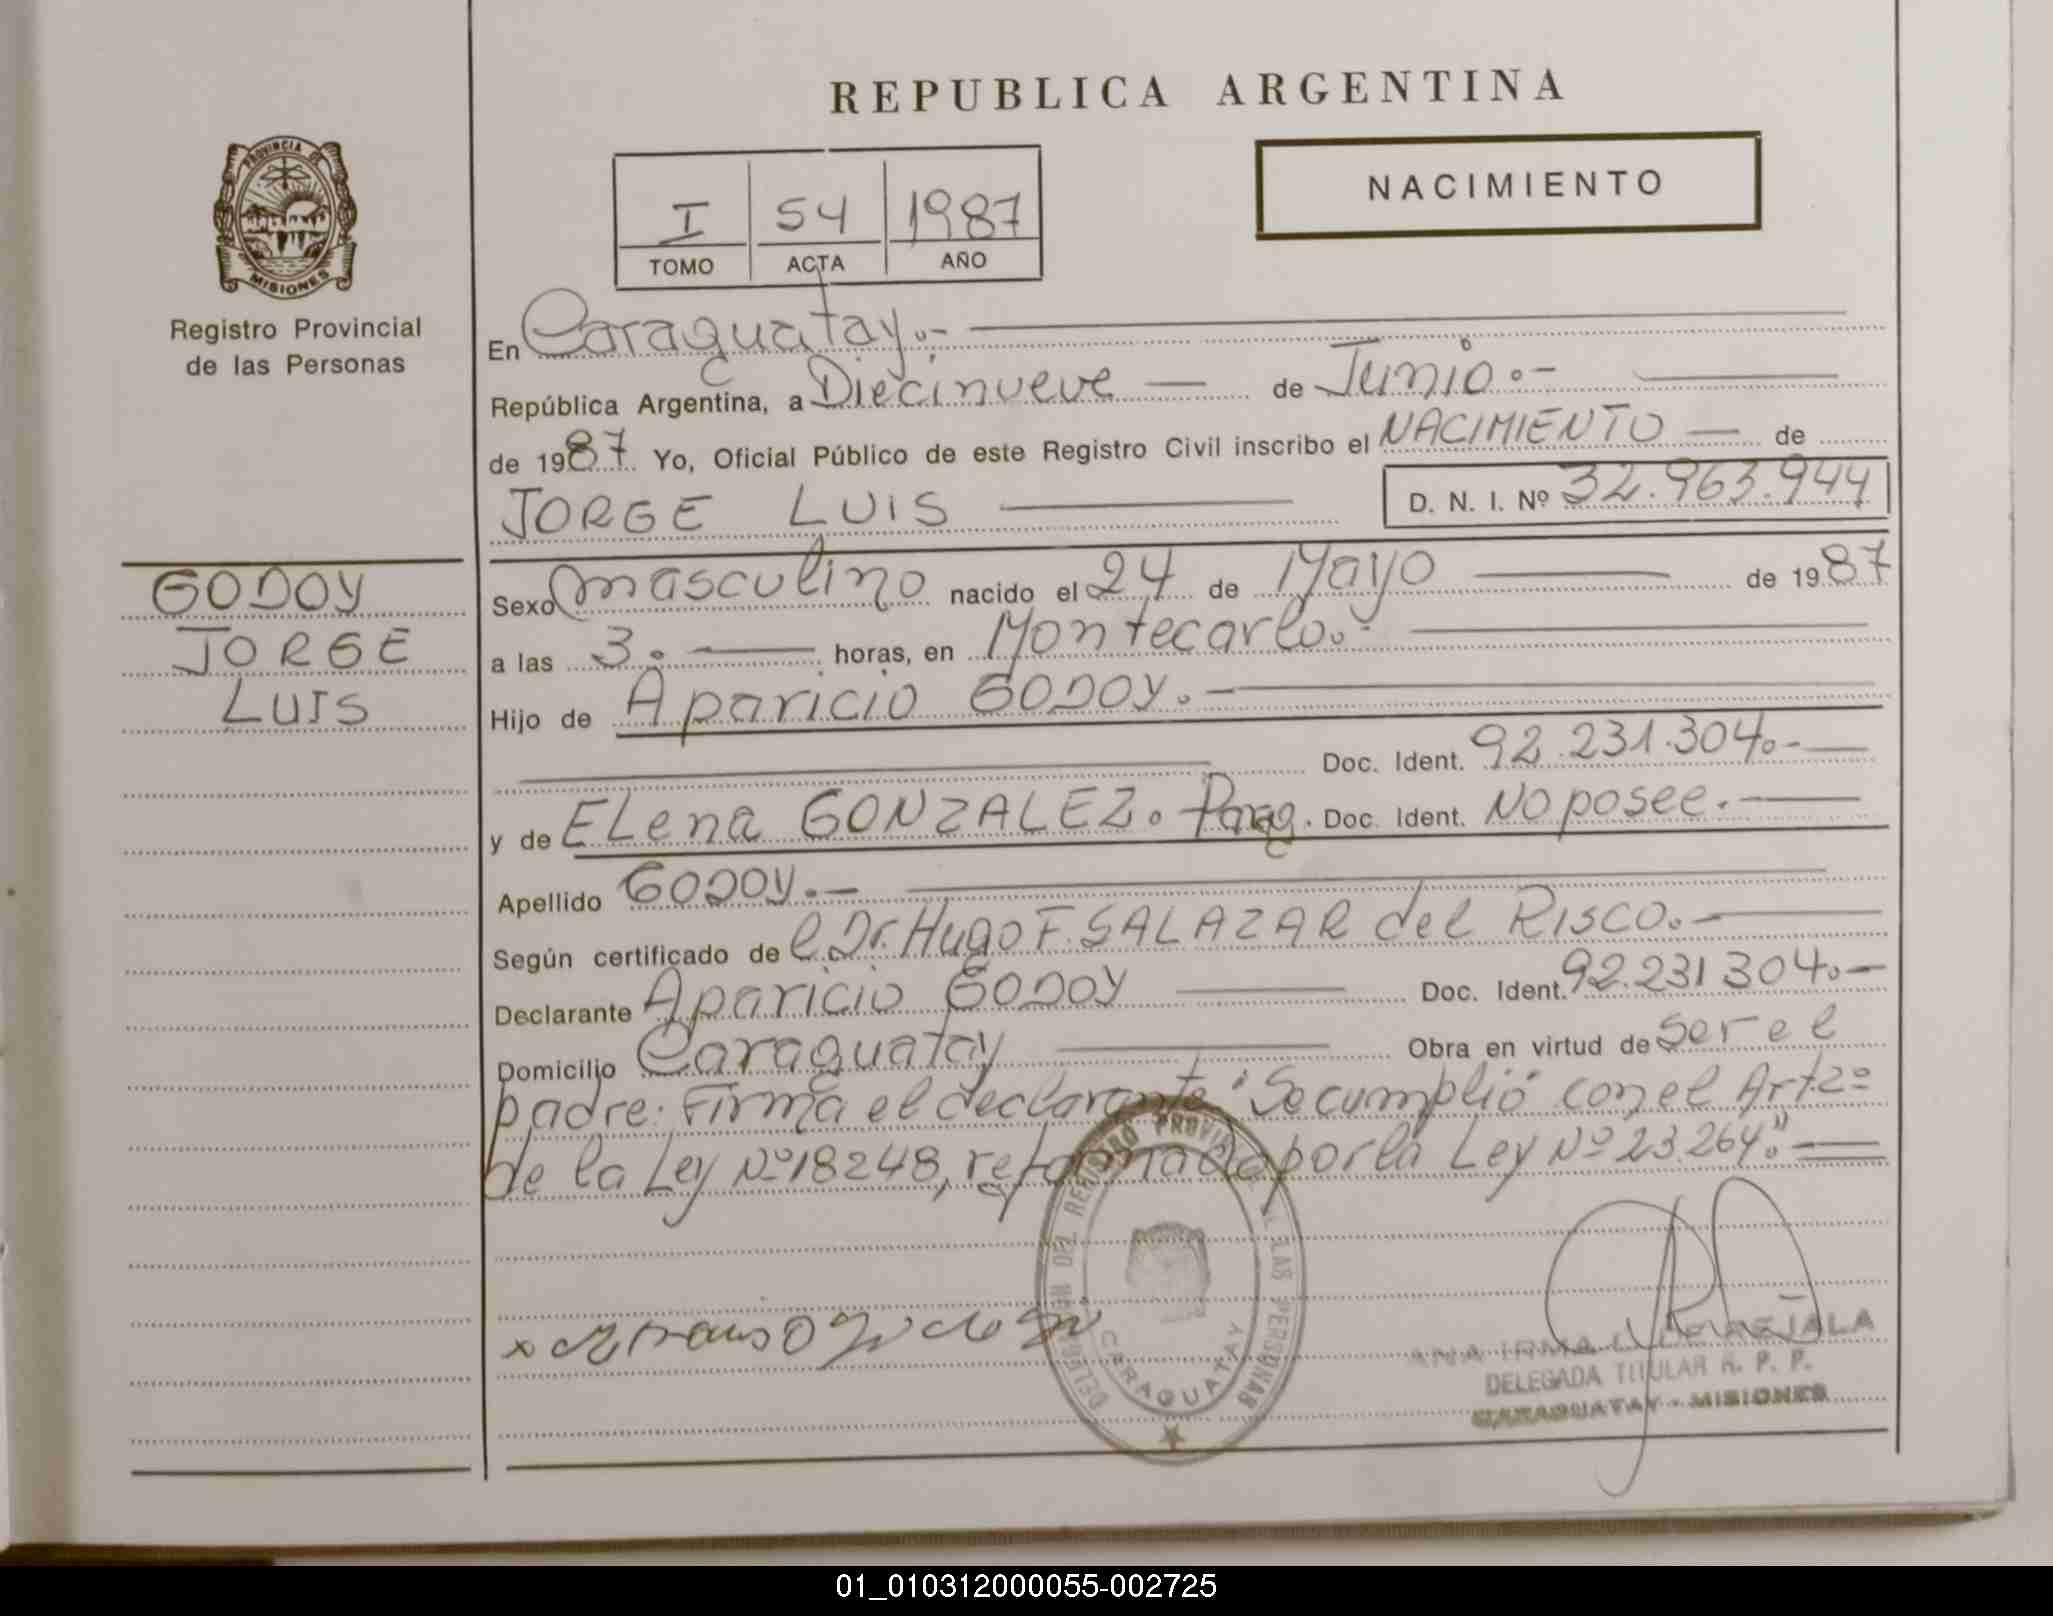 REPUBLICA ARGENTINA
PROVINCIA DE
MISIONES
Registro Provincial
de las Personas
I 54 1987
TOMO ACTA AÑO
NACIMIENTO
En Caraguatay.-
República Argentina, a Diecinueve — de Junio.-
de 1987. Yo, Oficial Público de este Registro Civil inscribo el NACIMIENTO — de
JORGE LUIS — D. N. I. Nº 32.963.944
GODOY
JORGE
LUIS
Sexo masculino nacido el 24 de Mayo — de 1987
a las 3. — horas, en Montecarlo.-
Hijo de Aparicio GODOY.-
Doc. Ident. 92.231.304.-
y de ELena GONZALEZ. Parag. Doc. Ident. No posee.-
Apellido GODOY.-
Según certificado de el Dr. Hugo F. SALAZAR del RISCO.-
Declarante Aparicio GODOY — Doc. Ident. 92.231304.-
Domicilio Caraguatay — Obra en virtud de ser el
padre: Firma el declarante "Se cumplió con el Art. 2º
de la Ley Nº 18248, reformada por la Ley Nº 23.264."
DELEGACION DEL REGISTRO PROVINCIAL DE LAS PERSONAS
CARAGUATAY
ANA IRMA
DELEGADA TITULAR R. P. P.
CARAGUATAY - MISIONES
01_010312000055-002725